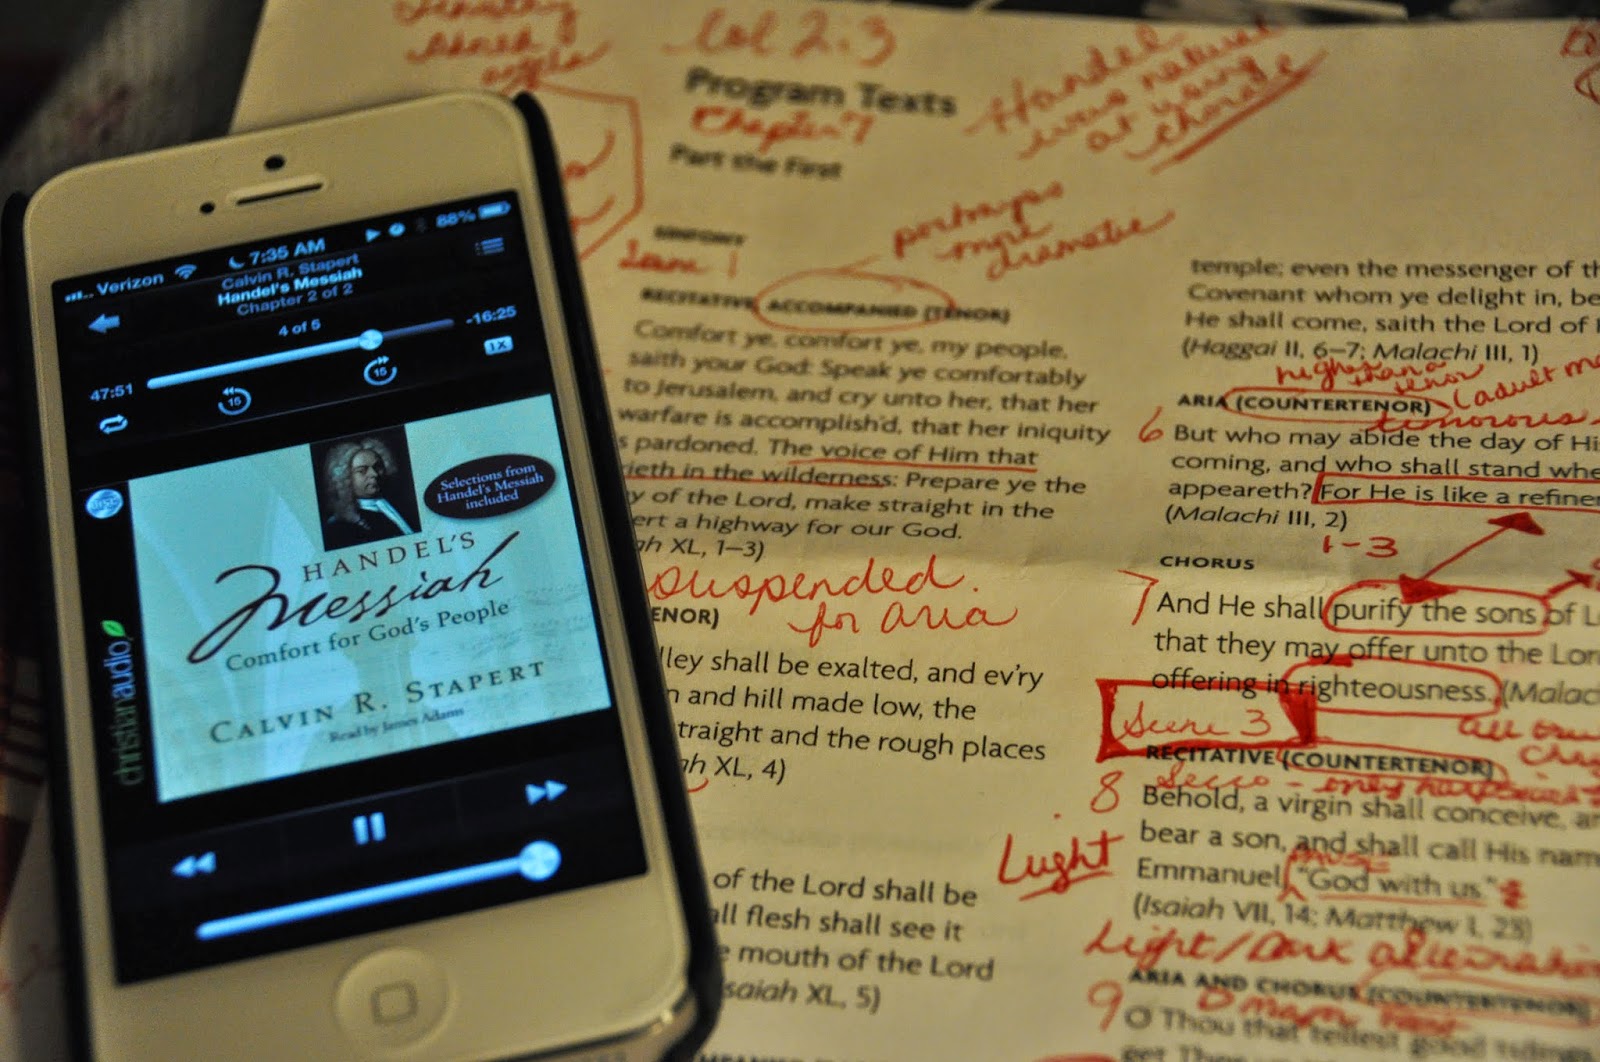 Verizon 7:35 AM 88%
Calvin R. Stapert
Handel's Messiah
Chapter 2 of 2
4 of 5
47:51 -16:25
15 15 1X
Selections from
Handel's Messiah
included
HANDEL'S
Messiah
Comfort for God's People
CALVIN R. STAPERT
Read by James Adams
christianaudio
Col 2:3
Program Texts
Chapter 7
Part the First
Handel
was
at young
portrays
more
dramatic
SINFONY
Scene 1
RECITATIVE, ACCOMPANIED (TENOR)
Comfort ye, comfort ye, my people,
saith your God: Speak ye comfortably
to Jerusalem, and cry unto her, that her
warfare is accomplish'd, that her iniquity
s pardoned. The voice of Him that
rieth in the wilderness: Prepare ye the
y of the Lord, make straight in the
ert a highway for our God.
h XL, 1–3)
suspended
for aria
ENOR)
lley shall be exalted, and ev'ry
n and hill made low, the
traight and the rough places
h XL, 4)
of the Lord shall be
all flesh shall see it
e mouth of the Lord
saiah XL, 5)
temple; even the messenger of th
Covenant whom ye delight in, be
He shall come, saith the Lord of
(Haggai II, 6–7; Malachi III, 1)
higher than a
tenor
(adult
ARIA (COUNTERTENOR)
6 But who may abide the day of Hi
coming, and who shall stand whe
appeareth? For He is like a refiner
(Malachi III, 2)
1-3
CHORUS
7 And He shall purify the sons of L
that they may offer unto the Lor
offering in righteousness. (Malac
Scene 3
RECITATIVE (COUNTERTENOR)
Secco - only
8 Behold, a virgin shall conceive, a
bear a son, and shall call His nam
Emmanuel, "God with us."
(Isaiah VII, 14; Matthew I, 23)
Light
Light/Dark
ARIA AND CHORUS (COUNTERTENOR)
D major
9 O Thou that tellest good tidings